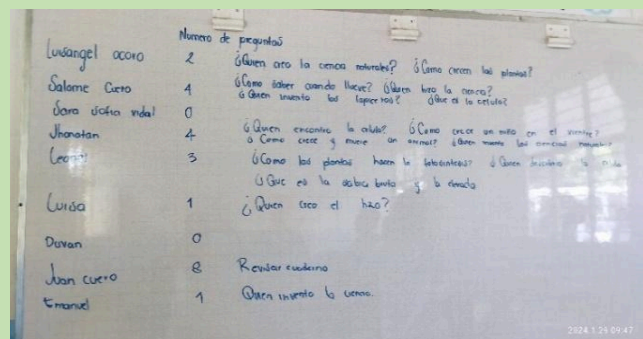 Numero de preguntas
Luisangel ocoro 2 ¿Quien creo la ciencia naturales? ¿Como crecen las plantas?
Salome Cuero 4 ¿Como saber cuando llueve? ¿Quien hizo la ciencia?
¿Quien invento los lapiceros? ¿Que es la celula?
Sara Sofia vidal 0
Jhonatan 4 ¿Quien encontro la celula? ¿Como crece un niño en el vientre?
¿Como crece y muere un animal? ¿Quien las ciencias
3 ¿Como las plantas hacen la fotosintesis? ¿Quien la
¿Que es la bruta y la
Luisa 1 ¿Quien creo el h20?
Duvan 0
Juan cuero 8 Revisar cuaderno
Emanuel 1 Quien invento la ciencia.
2024.1.29 09:47